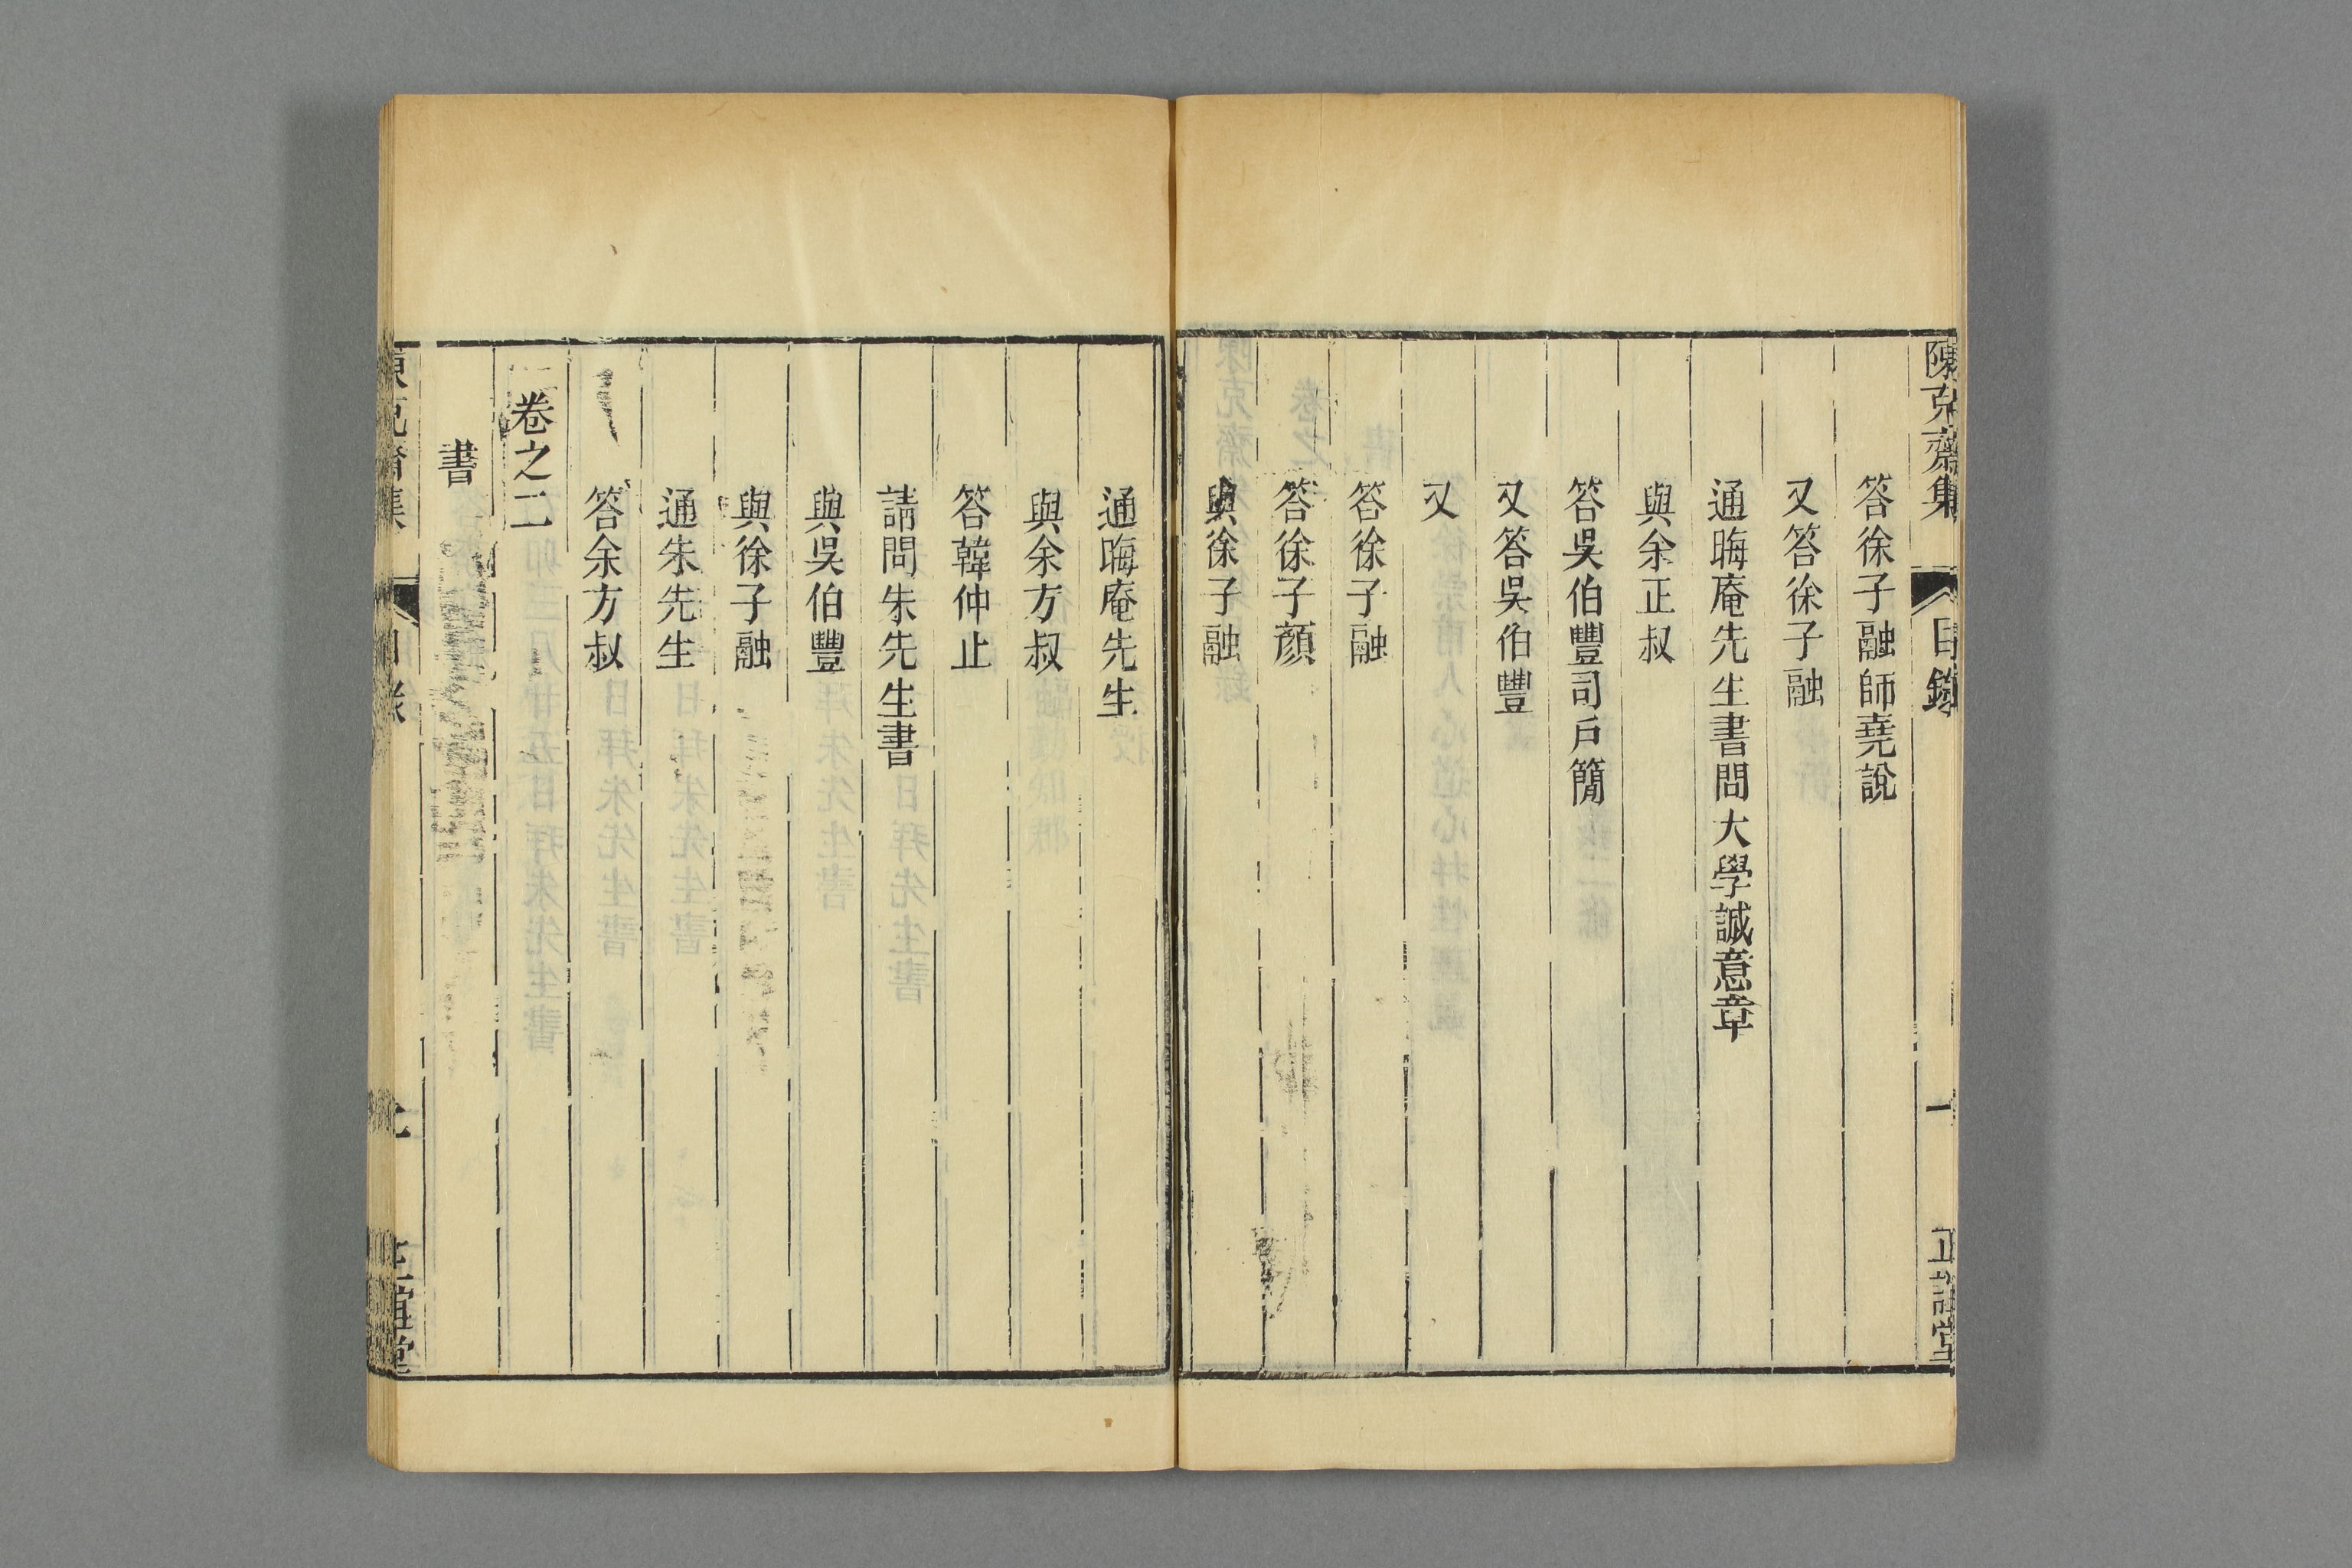 陳克齋集
目錄
一
正誼堂
答徐子融師堯說
又答徐子融
通晦庵先生書問大學誠意章
與余正叔
答吳伯豐司戶簡
又答吳伯豐
又
答徐子融
答徐子顏
與徐子融
通晦庵先生
與余方叔
答韓仲止
請問朱先生書
與吳伯豐
與徐子融
通朱先生
答余方叔
卷之二
書
陳克齋集
目錄
正誼堂